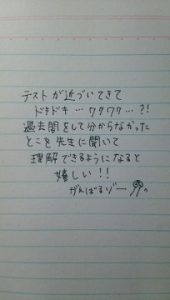 テストが近づいてきて
ドキドキ…ワクワク…?!
過去問をして分からなかった
とこを先生に聞いて
理解できるようになると
嬉しい!!
がんばるゾー